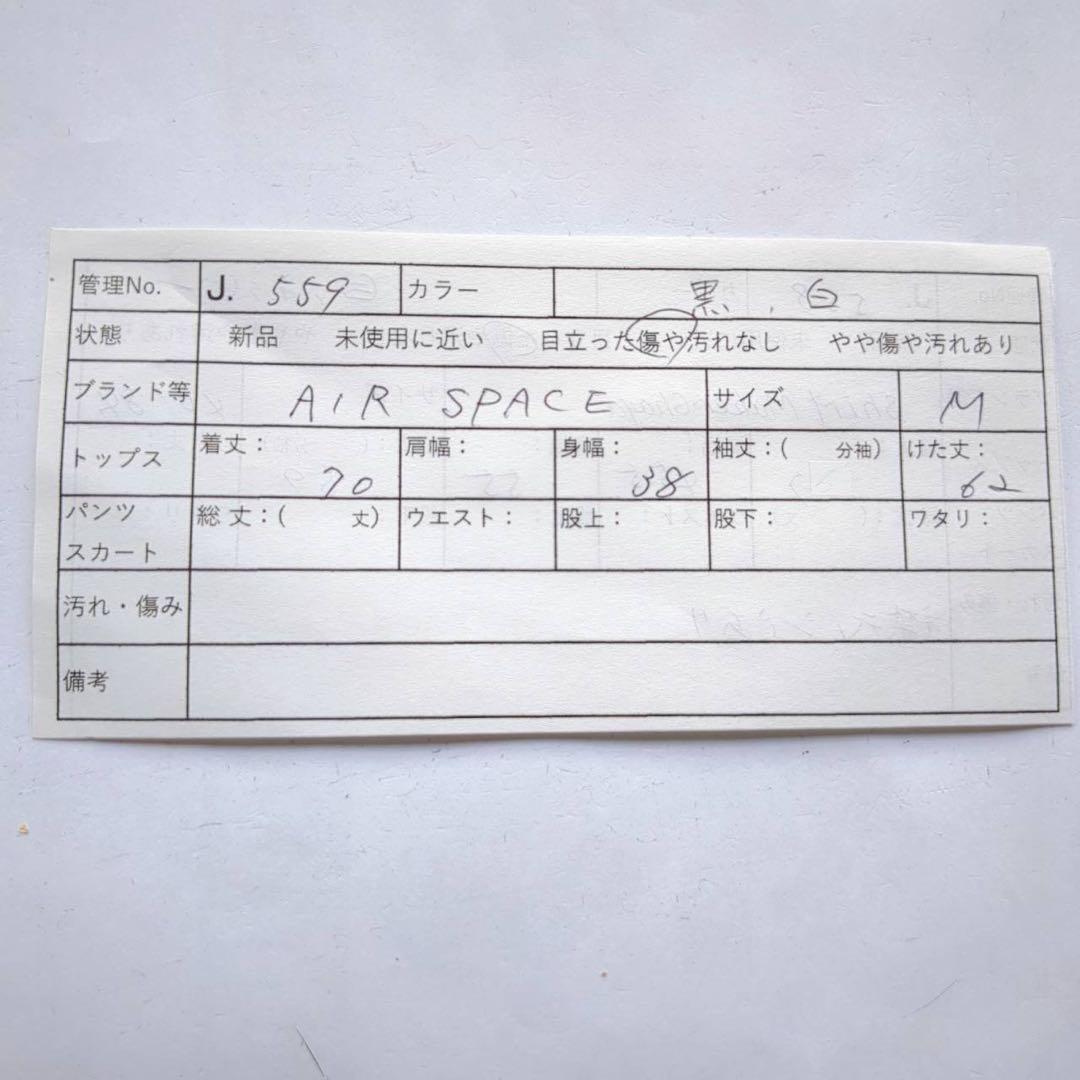 管理No. J. 559 カラー 黒、白
状態 新品 未使用に近い 目立った傷や汚れなし やや傷や汚れあり
ブランド等 AIR SPACE サイズ M
トップス 着丈： 70 肩幅： 身幅： 38 袖丈：( 分袖) けた丈： 62
パンツ スカート 総丈：( 丈) ウエスト： 股上： 股下： ワタリ：
汚れ・傷み
備考